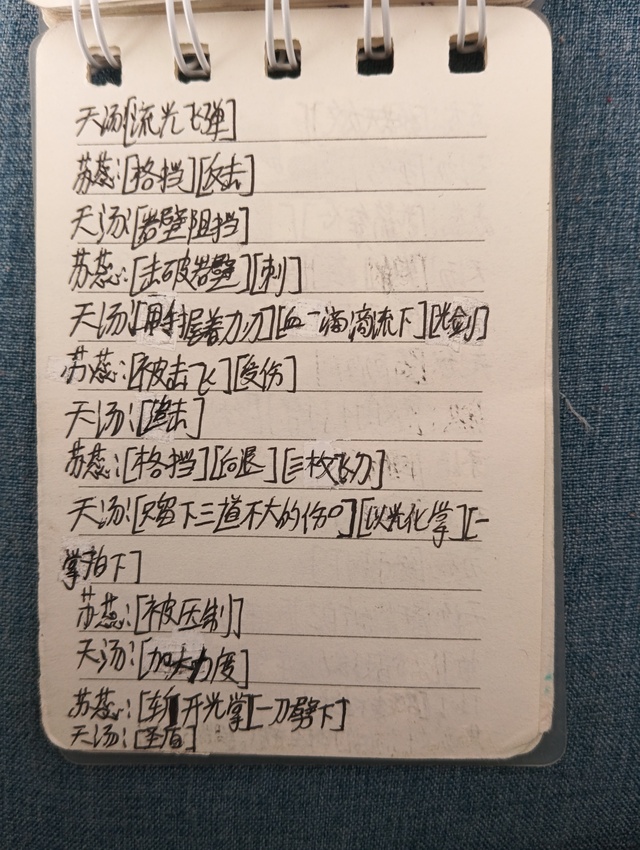 天汤[流光飞弹]
苏蕊:[格挡][反击]
天汤:[岩壁阻挡]
苏蕊:[击破岩壁][刺]
天汤:[用手握着刀刃][血一滴滴流下][光剑]
苏蕊:[被击飞][受伤]
天汤:[追击]
苏蕊:[格挡][后退][三枚飞刀]
天汤:[只留下三道不大的伤口][以光化掌][一
掌拍下]
苏蕊:[被压制]
天汤:[加大力度]
苏蕊:[斩开光掌][一刀劈下]
天汤:[圣盾]